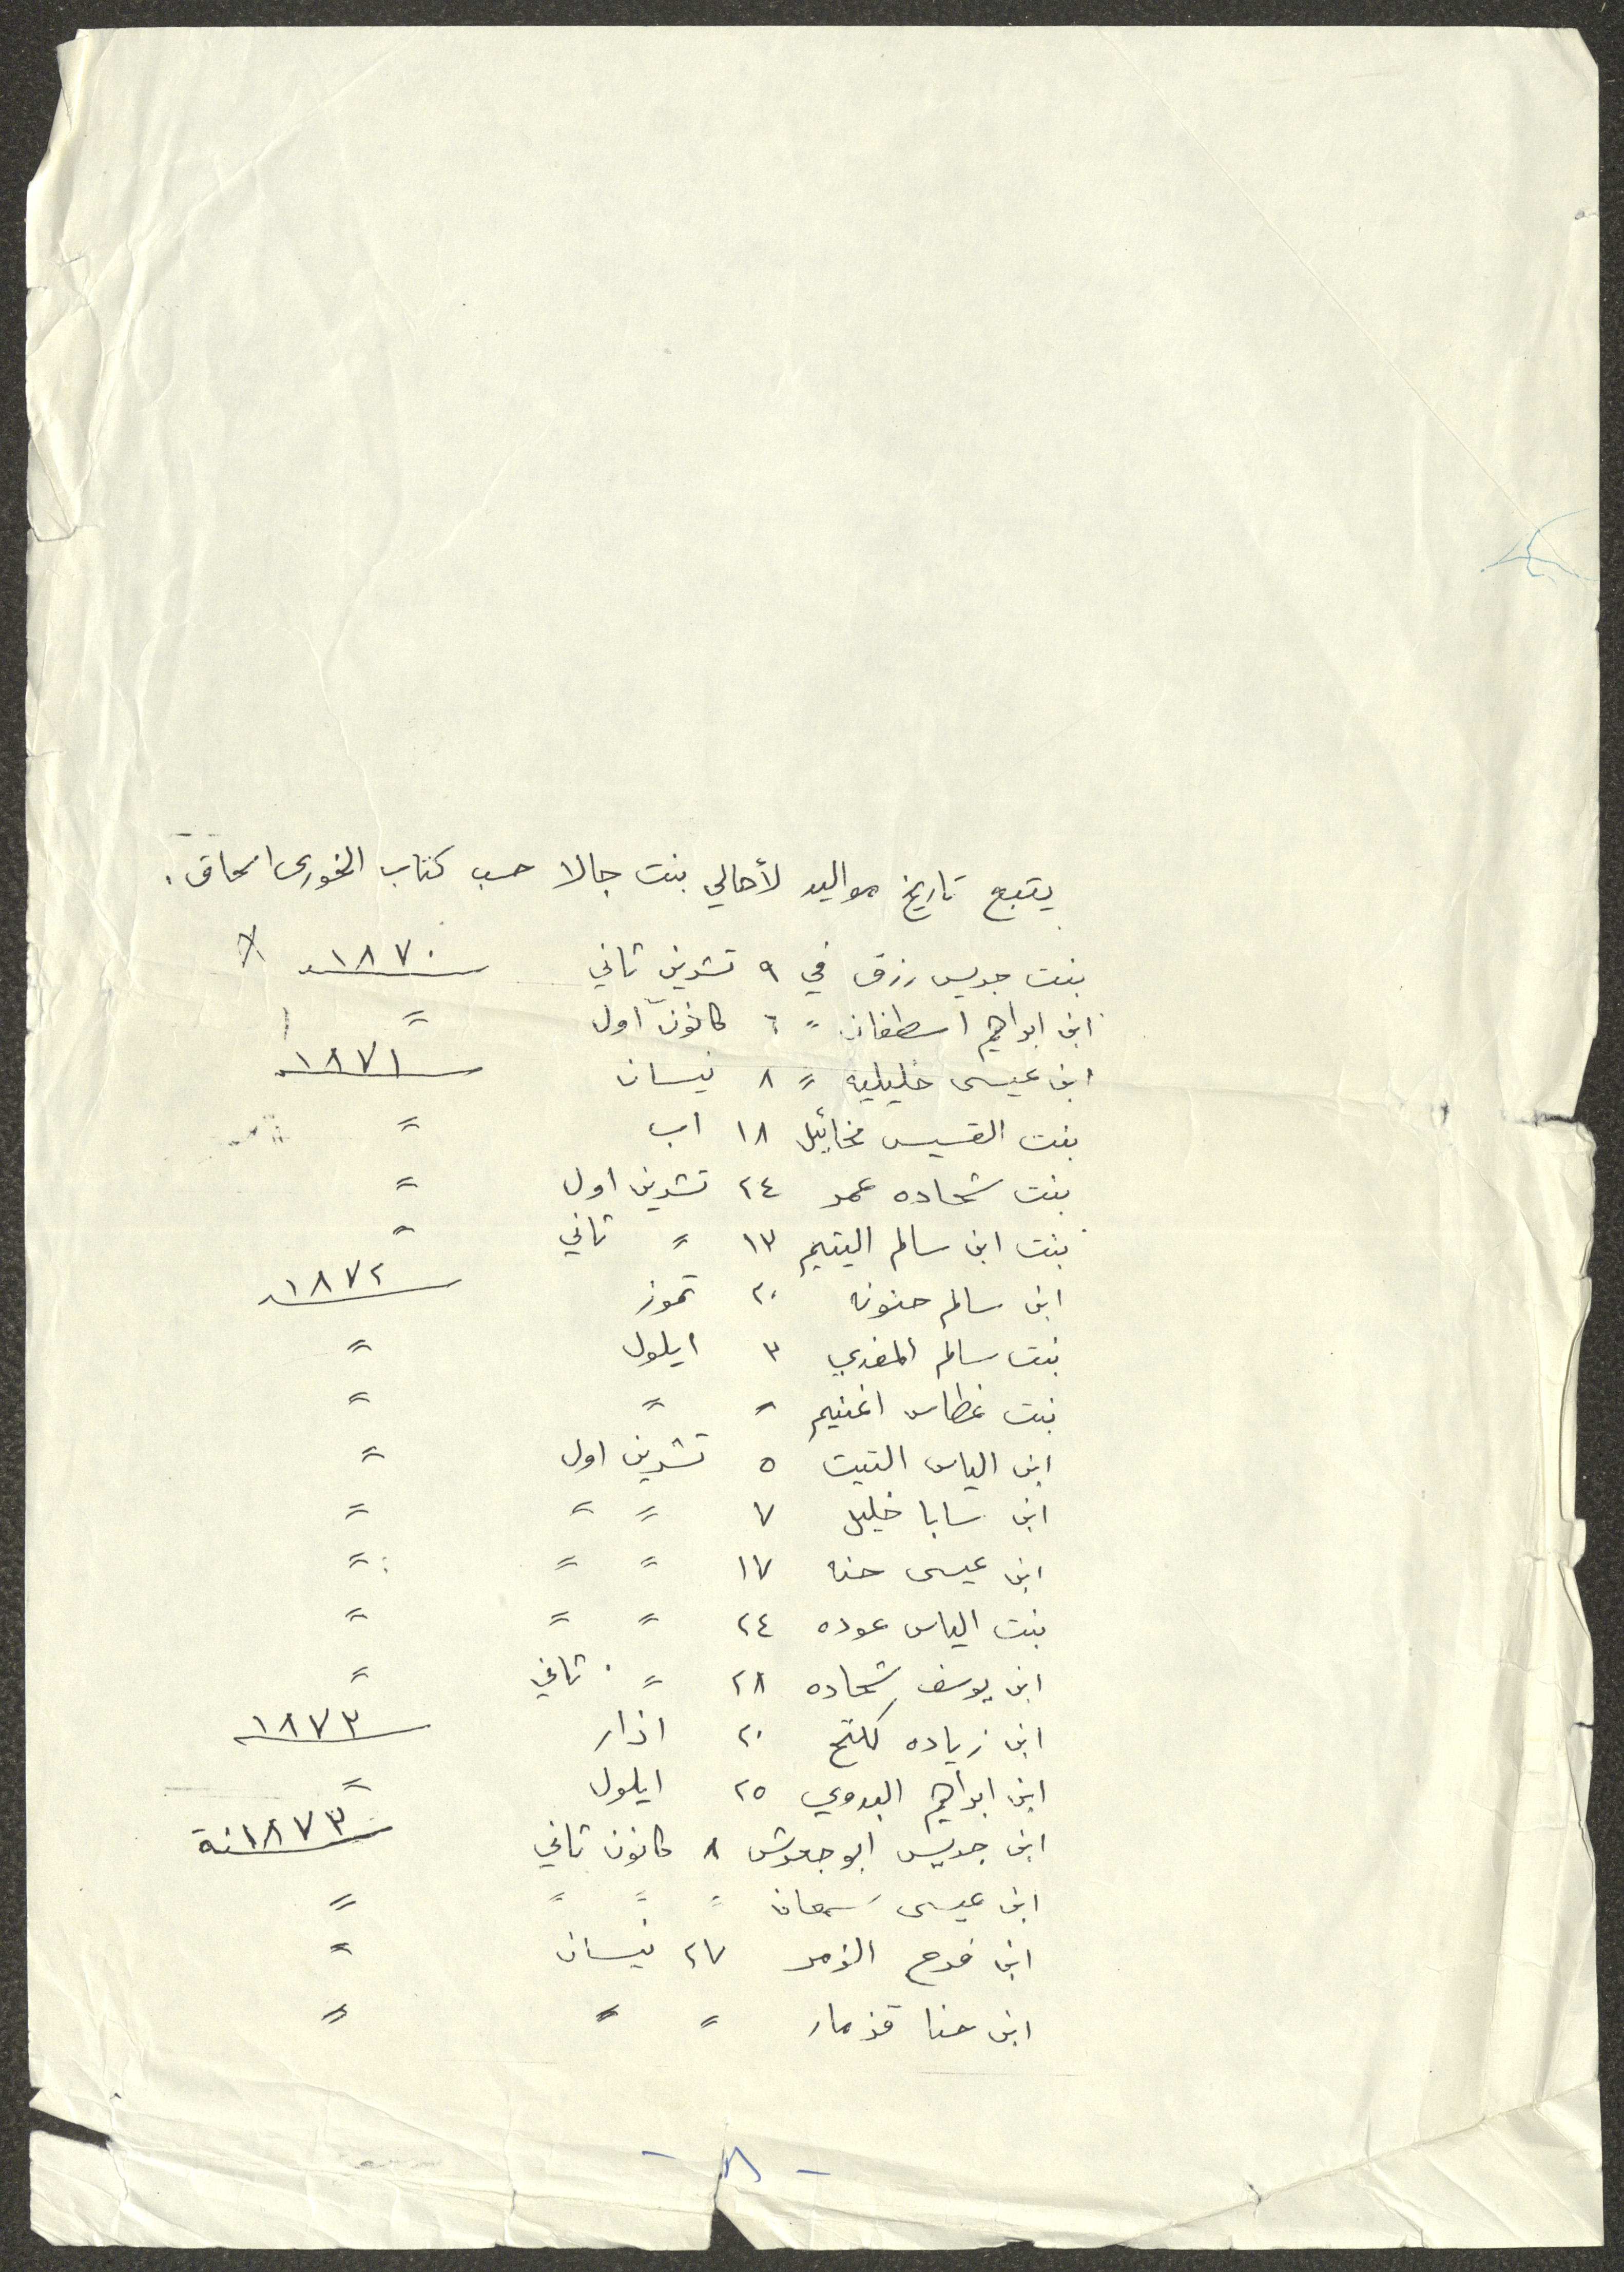 يتبع تاريخ مواليد لأهالي بنت جالا حسب كتاب الخوري اسحاق .
بنت جريس رزق في ٩ تشرين ثاني ١٨٧٠
ابن ابراهيم اسطفان " ٦ كانون اول "
ابن عيسى خليليه " ٨ نيسان ١٨٧١
بنت القسيس مخائيل ١٨ اب "
بنت شحاده عمر ٢٤ تشرين اول "
بنت ابن سالم اليتيم ١٣ " ثاني "
ابن سالم حنونه ٢٠ تموز ١٨٧٢
بنت سالم المغربي ٣ ايلول "
بنت غطاس اغنيم " " "
ابن الياس التيت ٥ تشرين اول "
ابن سابا خليل ٧ " " "
ابن عيسى حنه ١٧ " " "
بنت الياس عوده ٢٤ " " "
ابن يوسف شحاده ٢٨ " ثاني "
ابن زياده كلتح ٢٠ اذار ١٨٧٣
ابن ابراهيم البدوي ٢٥ ايلول "
ابن جريس ابو جعرش ٨ كانون ثاني ١٨٧٣
ابن عيسى سمعان " " " "
ابن فرح الزمر ٢٧ نيسان "
ابن حنا قزمار " " "
- ٨ -